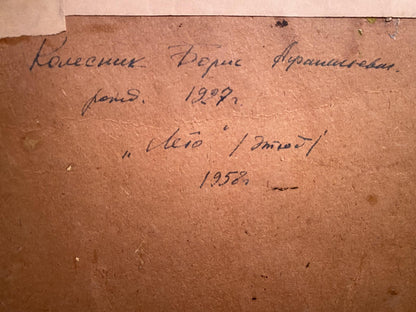 Колесник Борис Афанасьевич.
рожд. 1927г.
„Лето" /этюд/
1958г